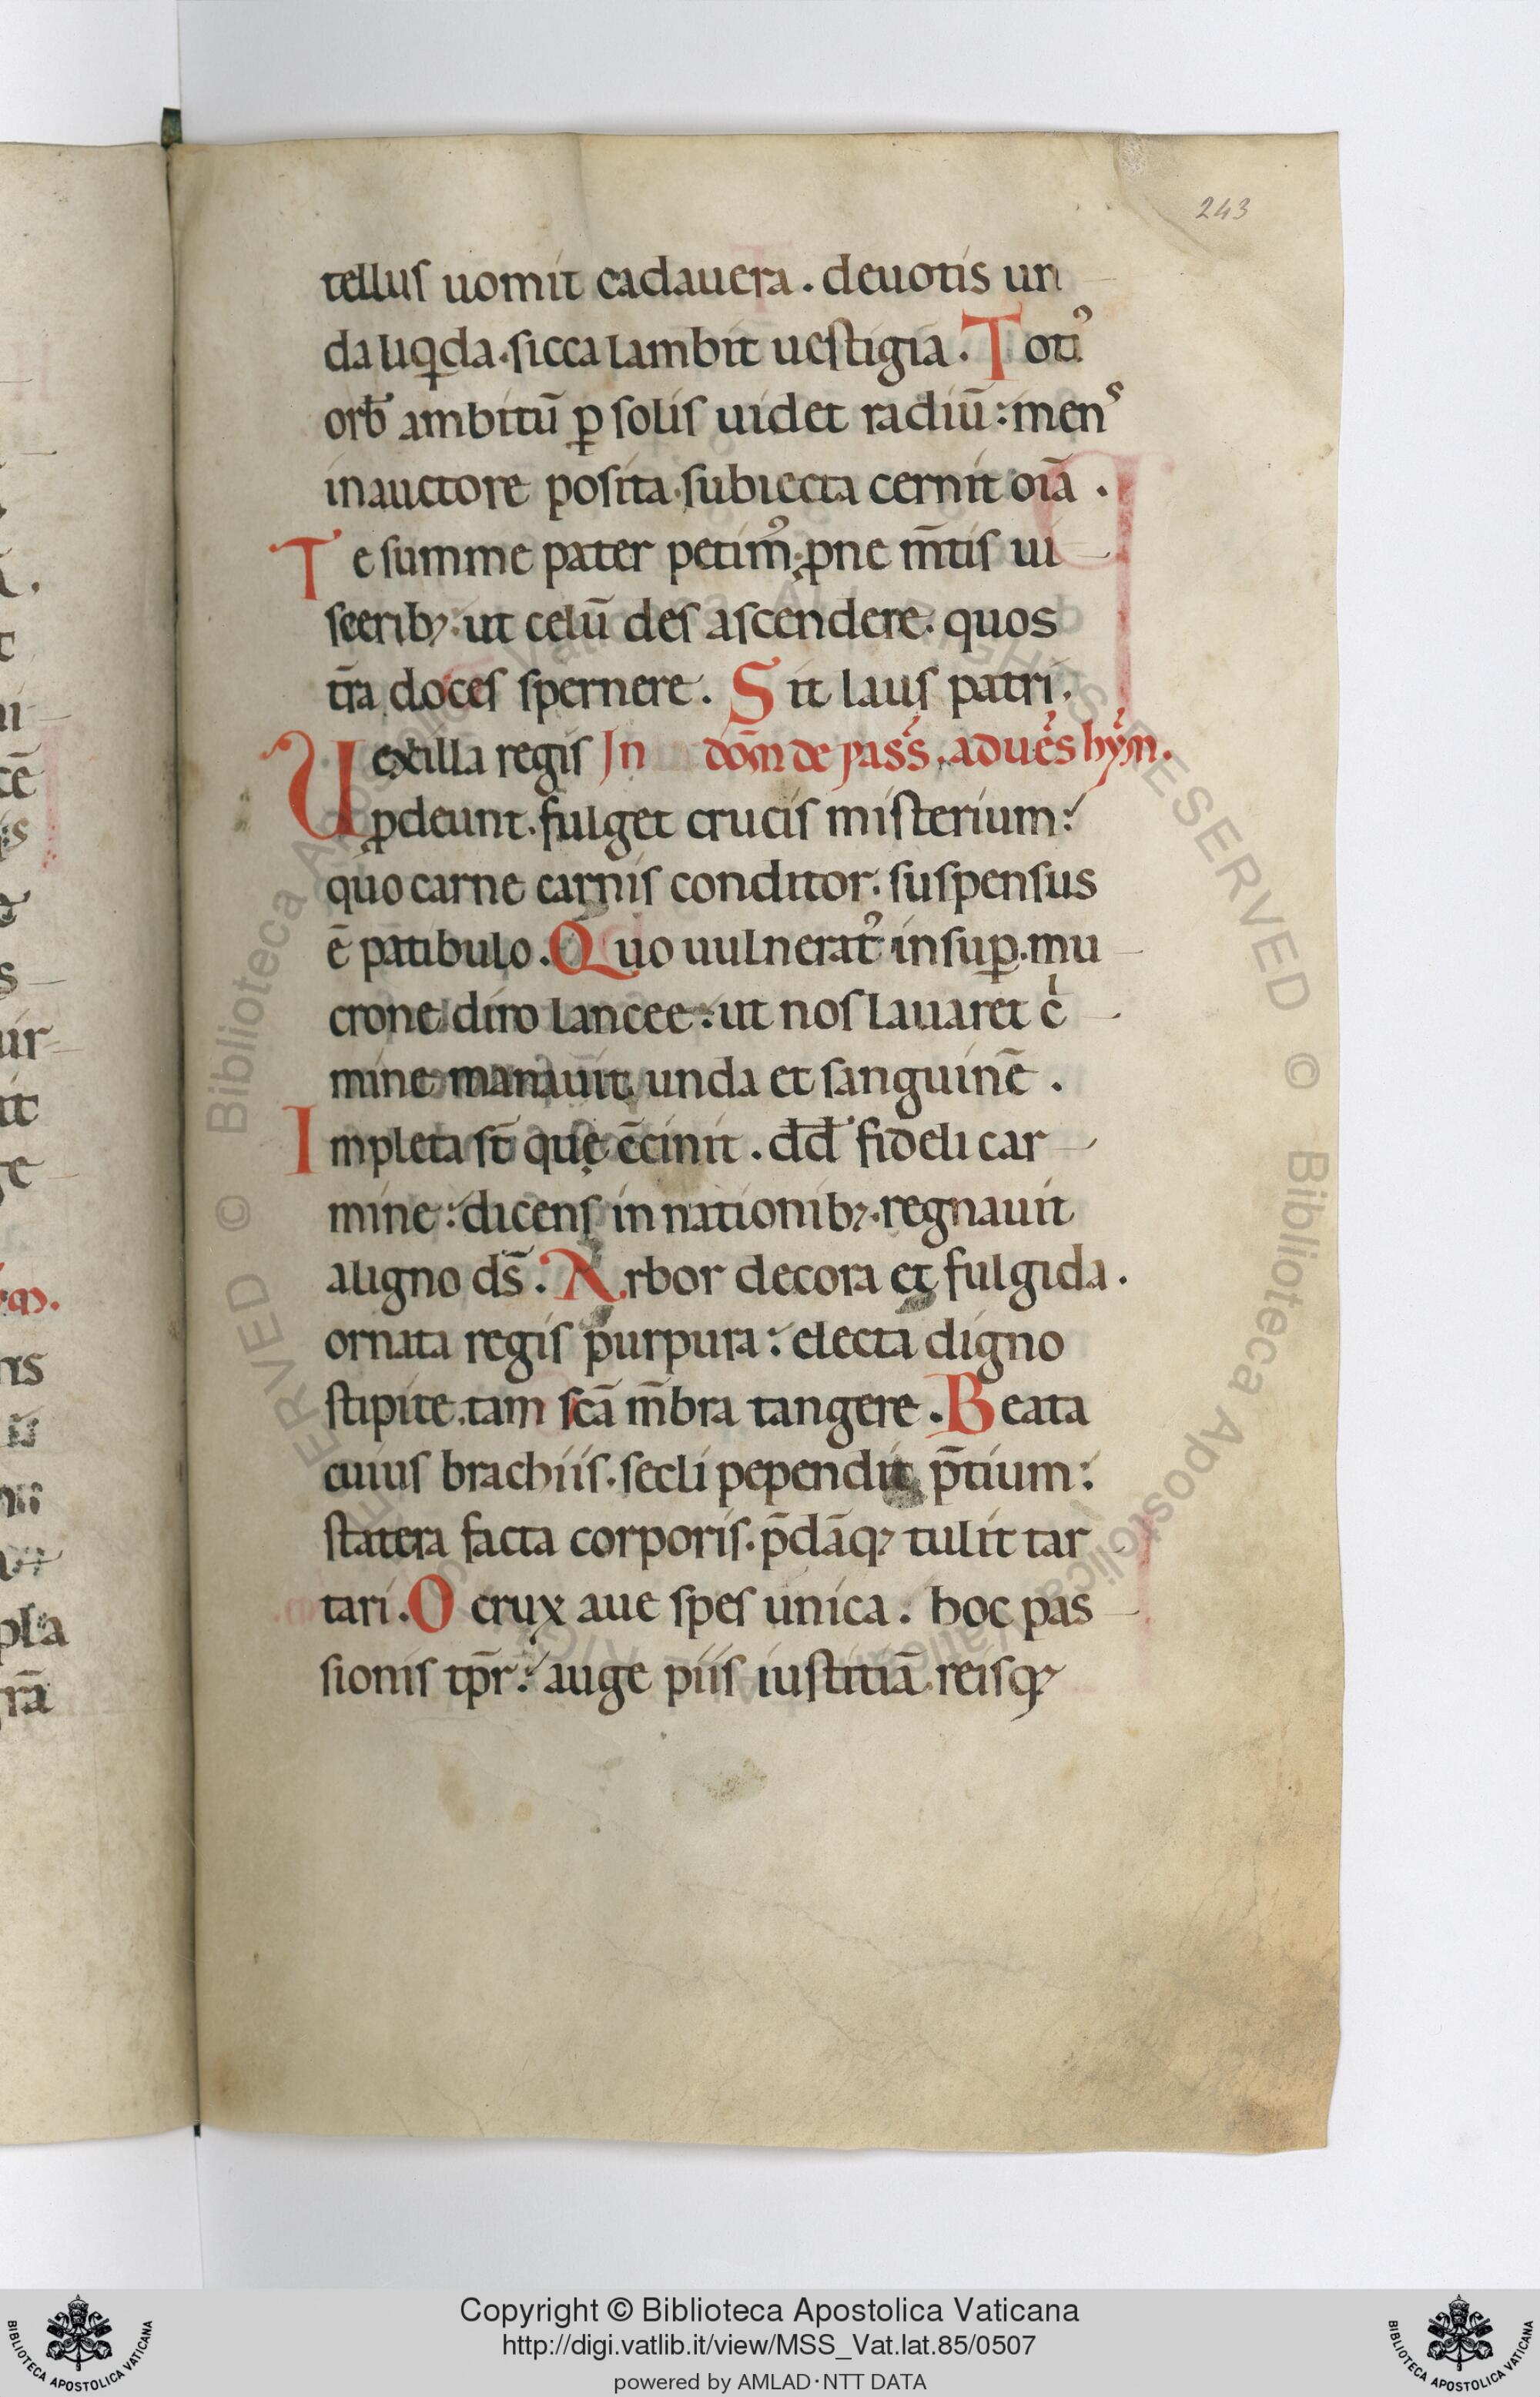 243
tellus uomit cadauera . deuotis un
da liqda . sicca lambit uestigia . Toti᾽
orb̄ ambitū ꝑ solis uidet radiū : mens
in auctore posita . subiecta cernit oīa .
Te summe pater petim᾽ . ꝓne m̄tis ui
sceribꝫ : ut celū des ascendere . quos
t̄ra doces spernere . Sit laus patri .
Uexilla regis In dōm de pass . ad ues hym .
ꝓdeunt . fulget crucis misterium :
quo carne carnis conditor . suspensus
ē patibulo . Quo uulnerat᾽ insuꝑ . mu
crone diro lancee : ut nos lauaret c̓
mine manauit unda et sanguinē .
Impleta st̄ que ̨ c̄cinit . dd̄ fideli car
mine : dicens in nationibꝫ . regnauit
a ligno ds̄ . Arbor decora et fulgida .
ornata regis purpura : electa digno
stipite . tam sc̄a m̄bra tangere . Beata
cuius brachiis . secli pependit p̄tium :
statera facta corporis . p̄dāqꝫ tulit tar
tari . O crux aue spes unica . hoc pas
sionis tp̄r : auge piis iustitiā . reisqꝫ
Copyright © Biblioteca Apostolica Vaticana
http://digi.vatlib.it/view/MSS_Vat.lat.85/0507
powered by AMLAD·NTT DATA
BIBLIOTECA APOSTOLICA VATICANA
BIBLIOTECA APOSTOLICA VATICANA